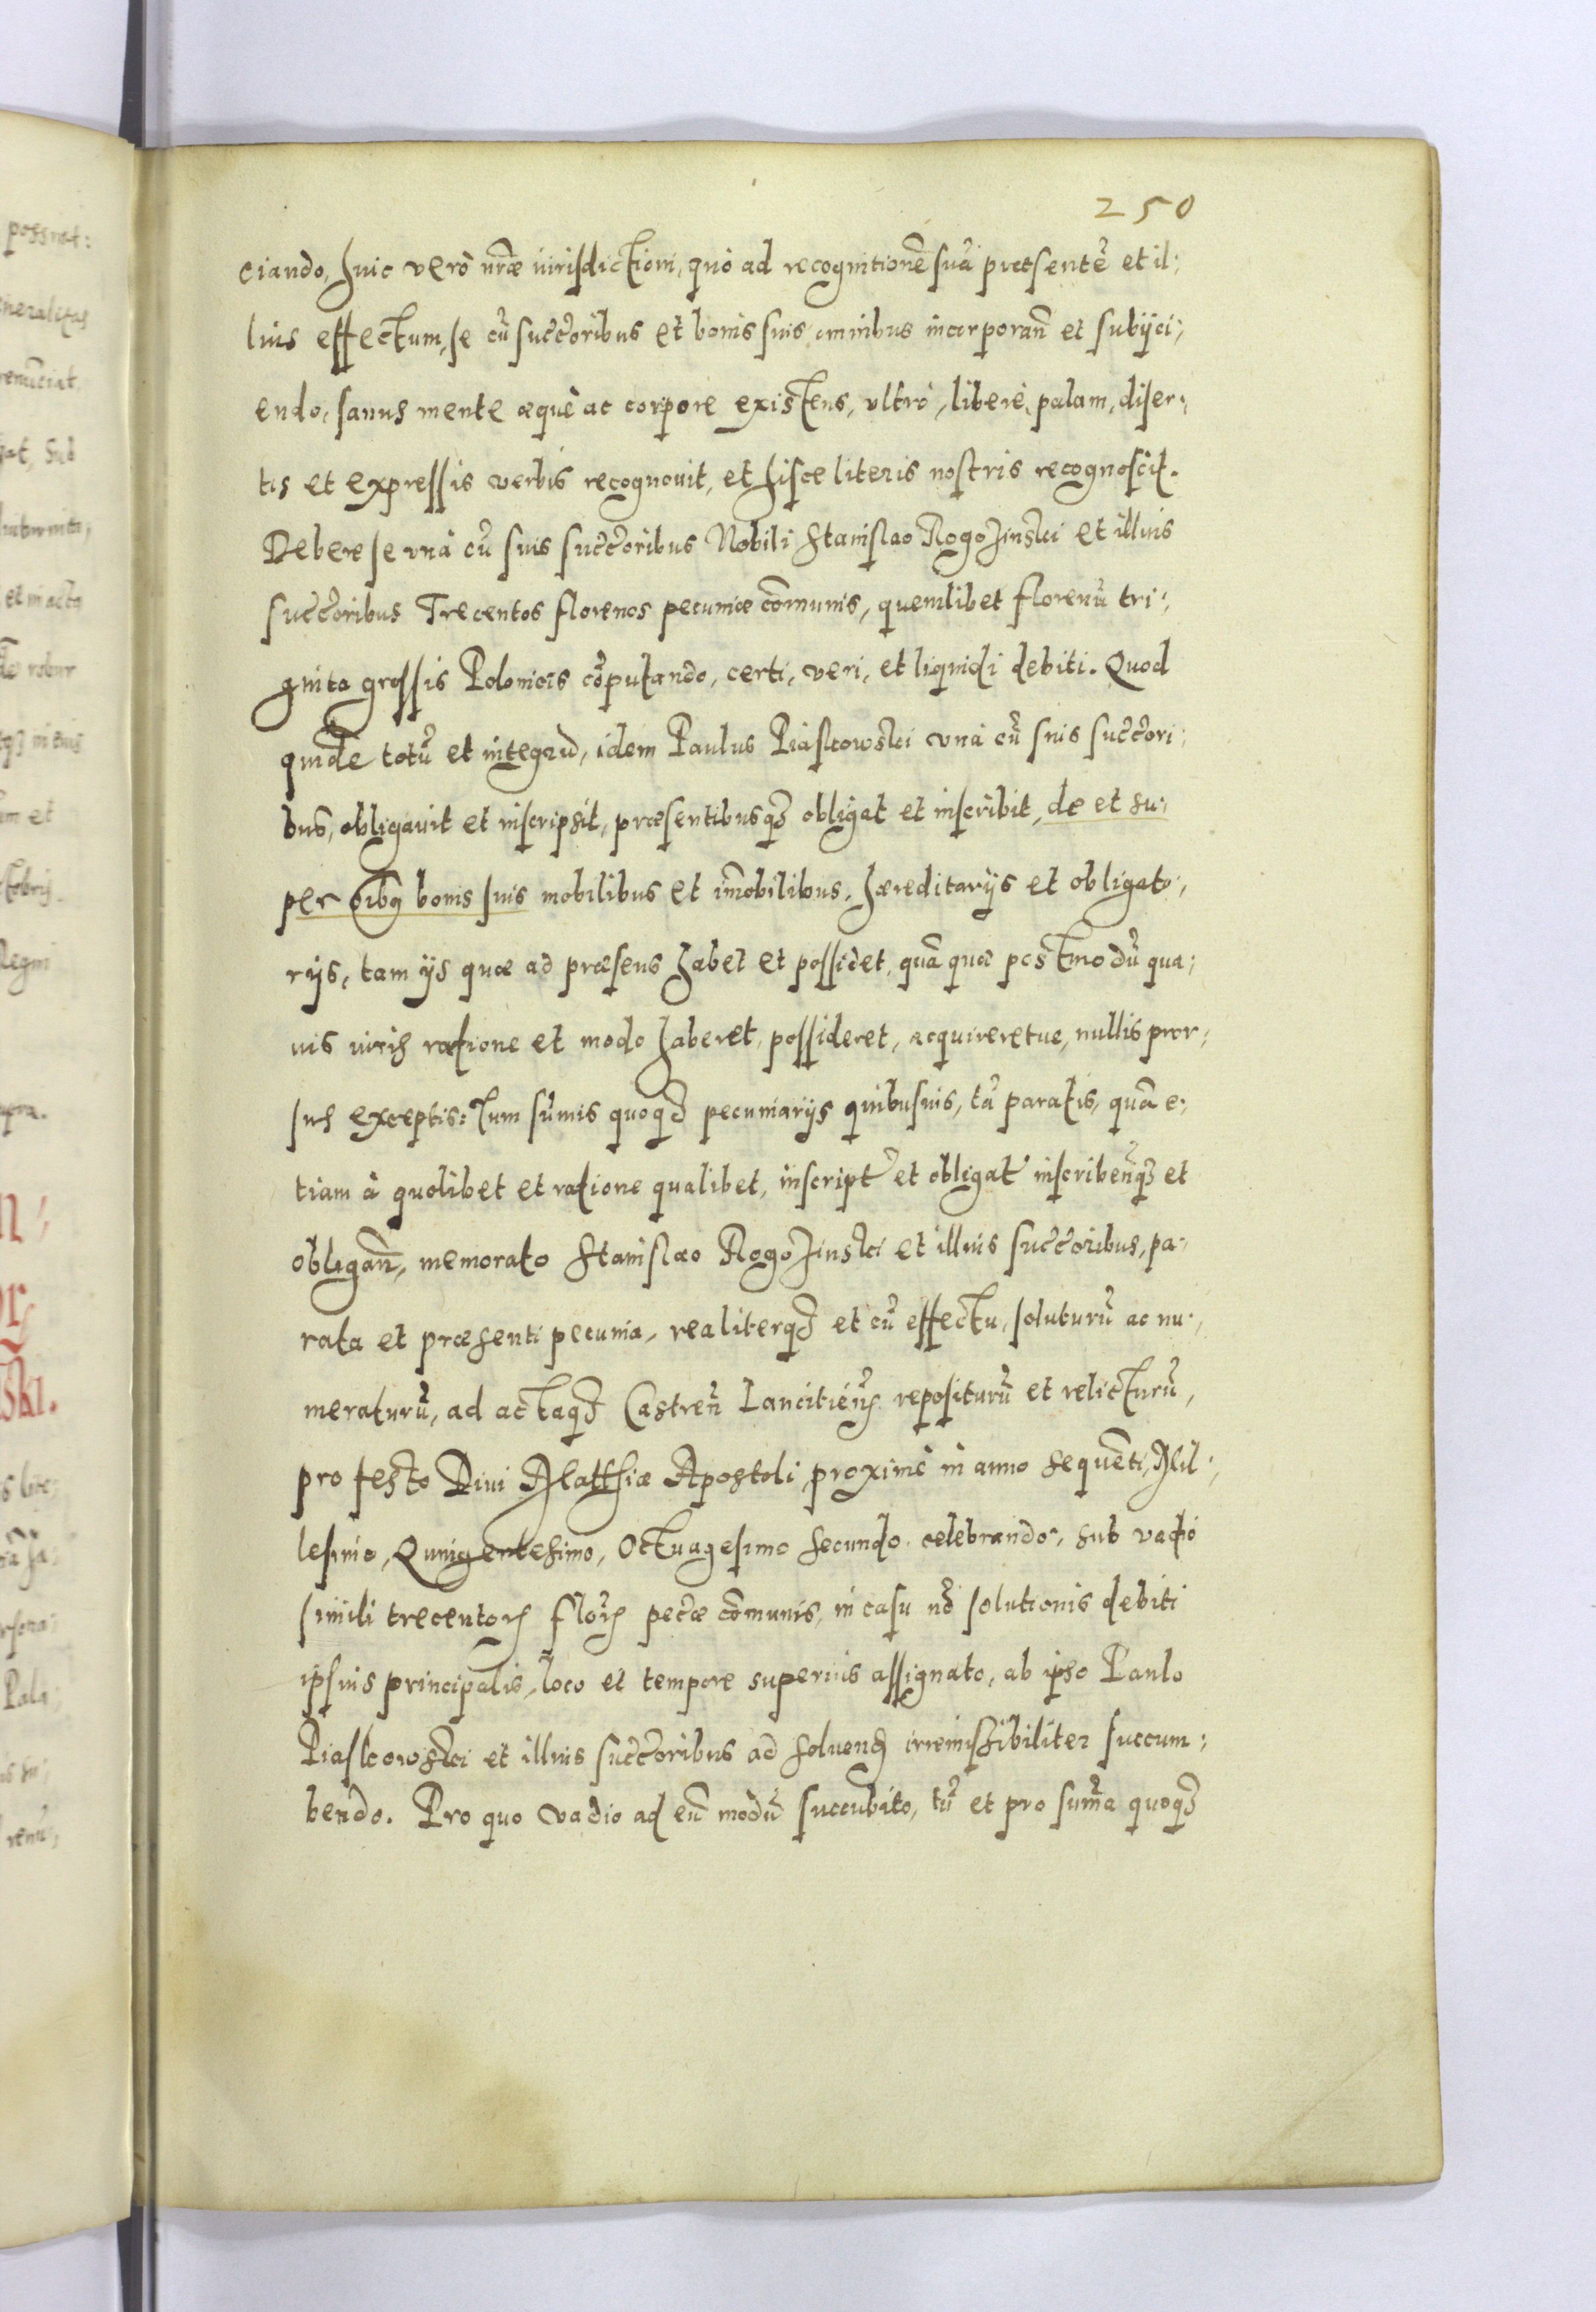 250
ciando, huic verò nr̃æ iurisdictioni, quò ad recognitionẽ suã præsentẽ et il:
lius effectum, se cũ succ̃oribus et bonis suis omnibus incorporañ et subijci:
endo, sanus mente æquè ac corpore existens, vltrò, liberè, palam, diser:
tis et expressis verbis recognouit, et hisce literis nostris recognoscit.
Debere se vnà cũ suis succ̃oribus Nobili Stanislao Rogozinski et illius
succ̃oribus Trecentos florenos pecuniæ com̃unis, quemlibet florenũ tri:
ginta grossis Polonicis cõputando, certi, veri, et liquidi debiti. Quod
quidẽ totũ et integrũ, idem Paulus Piaskowski vnà cũ suis succ̃ori:
bus, obligauit et inscripsit, præsentibusqꝫ obligat et inscribit, de et su:
per oĩbꝰ bonis suis mobilibus et im̃obilibus, hæreditarijs et obligato:
rijs, tam ijs quæ ad præsens habet et possidet, quã quæ postmodũ qua:
uis iuris ratione et modo haberet, possideret, acquireretue, nullis pror:
sus exceptis: Tum sũmis quoqꝫ pecuniarijs quibusuis, tã paratis, quã e:
tiam à quolibet et ratione qualibet, inscript̃ et obligat̃ inscribeñqꝫ et
obligañ, memorato Stanislao Rogozinski et illius succ̃oribus, pa:
rata et præsenti pecunia, realiterqꝫ et cũ effectu, soluturũ ac nu:
meraturũ, ad actaqꝫ Castreñ Lancitieñ: repositurũ et relicturũ,
pro festo Diui Matthiæ Apostoli, proximè in anno sequẽti, Mil:
lesimo, Quingentesimo, Octuagesimo secundo celebrando, sub vadio
simili trecentoꝝ floꝝ pec̃æ com̃unis, in casu nõ solutionis debiti
ipsius principalis, loco et tempore superius assignato, ab ipso Paulo
Piaskowski et illius succ̃oribus ad soluend̃ irremissibiliter succum:
bendo. Pro quo vadio ad eũ modũ succubito, tũ et pro sum̃a quoqꝫ